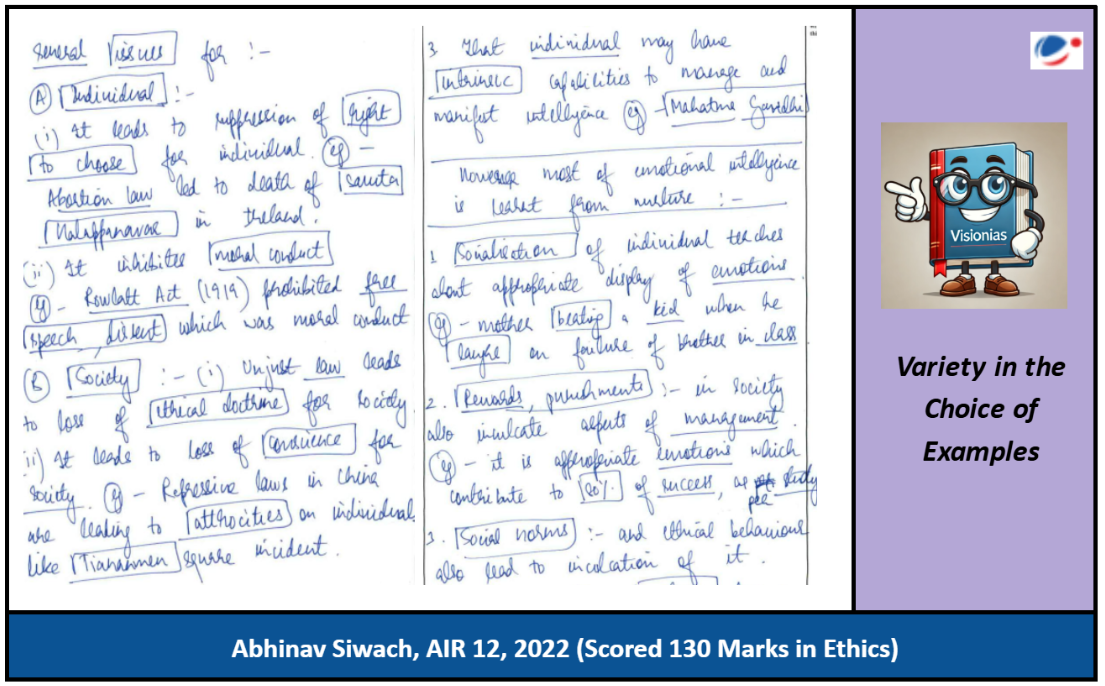 General issues for :-
(A) Individual :-
(i) It leads to suppression of right
to choose for individual. eg -
Abortion law led to death of Savita
Halappanavar in Ireland.
(ii) It inhibites moral conduct
eg - Rowlatt Act (1919) prohibited free
speech, dissent which was moral conduct
(B) Society :- (i) Unjust law leads
to loss of ethical doctrine for society
ii) It leads to loss of conscience for
society. eg - Repressive laws in China
are leading to atthocities on individual
like Tiananmen square incident.
3. That individual may have
intrinsic capabilities to manage and
manifest intelligence eg - Mahatma Gandhi
However most of emotional intelligence
is learnt from nurture :-
1. Socialisation of individual teaches
about appropriate display of emotions
eg - mother beating a kid when he
laughs on failure of brother in class
2. Rewards, punishments :- in society
also inculcate aspects of management.
eg - it is appropriate emotions which
contribute to 80% of success, as per study
3. Social norms :- and ethical behaviour
also lead to inculcation of it.
Visionias
Variety in the
Choice of
Examples
Abhinav Siwach, AIR 12, 2022 (Scored 130 Marks in Ethics)